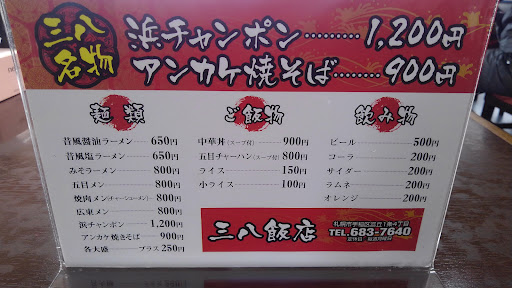 三八名物
浜チャンポン………1,200円
アンカケ焼そば……900円
麺類
昔風醤油ラーメン…… 650円
昔風塩ラーメン……… 650円
みそラーメン………… 800円
五目メン……………… 800円
焼肉メン(チャーシューメン)… 800円
広東メン……………… 800円
浜チャンポン………… 1,200円
アンカケ焼きそば…… 900円
各大盛………… プラス 250円
ご飯物
中華丼(スープ付)……… 900円
五目チャーハン(スープ付) 800円
ライス………………… 150円
小ライス……………… 100円
飲み物
ビール………………… 500円
コーラ………………… 200円
サイダー……………… 200円
ラムネ………………… 200円
オレンジ……………… 200円
三八飯店
札幌市手稲区富丘1条4丁目
TEL.683-7640
定休日